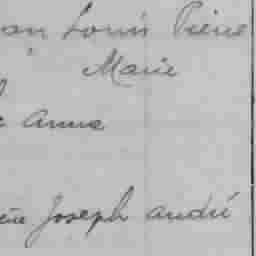 an Louis Pierre
Marie
Anna
Joseph André